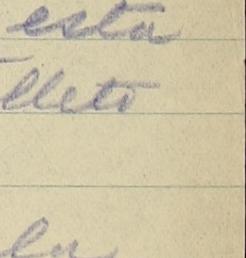 esta
lleto
la